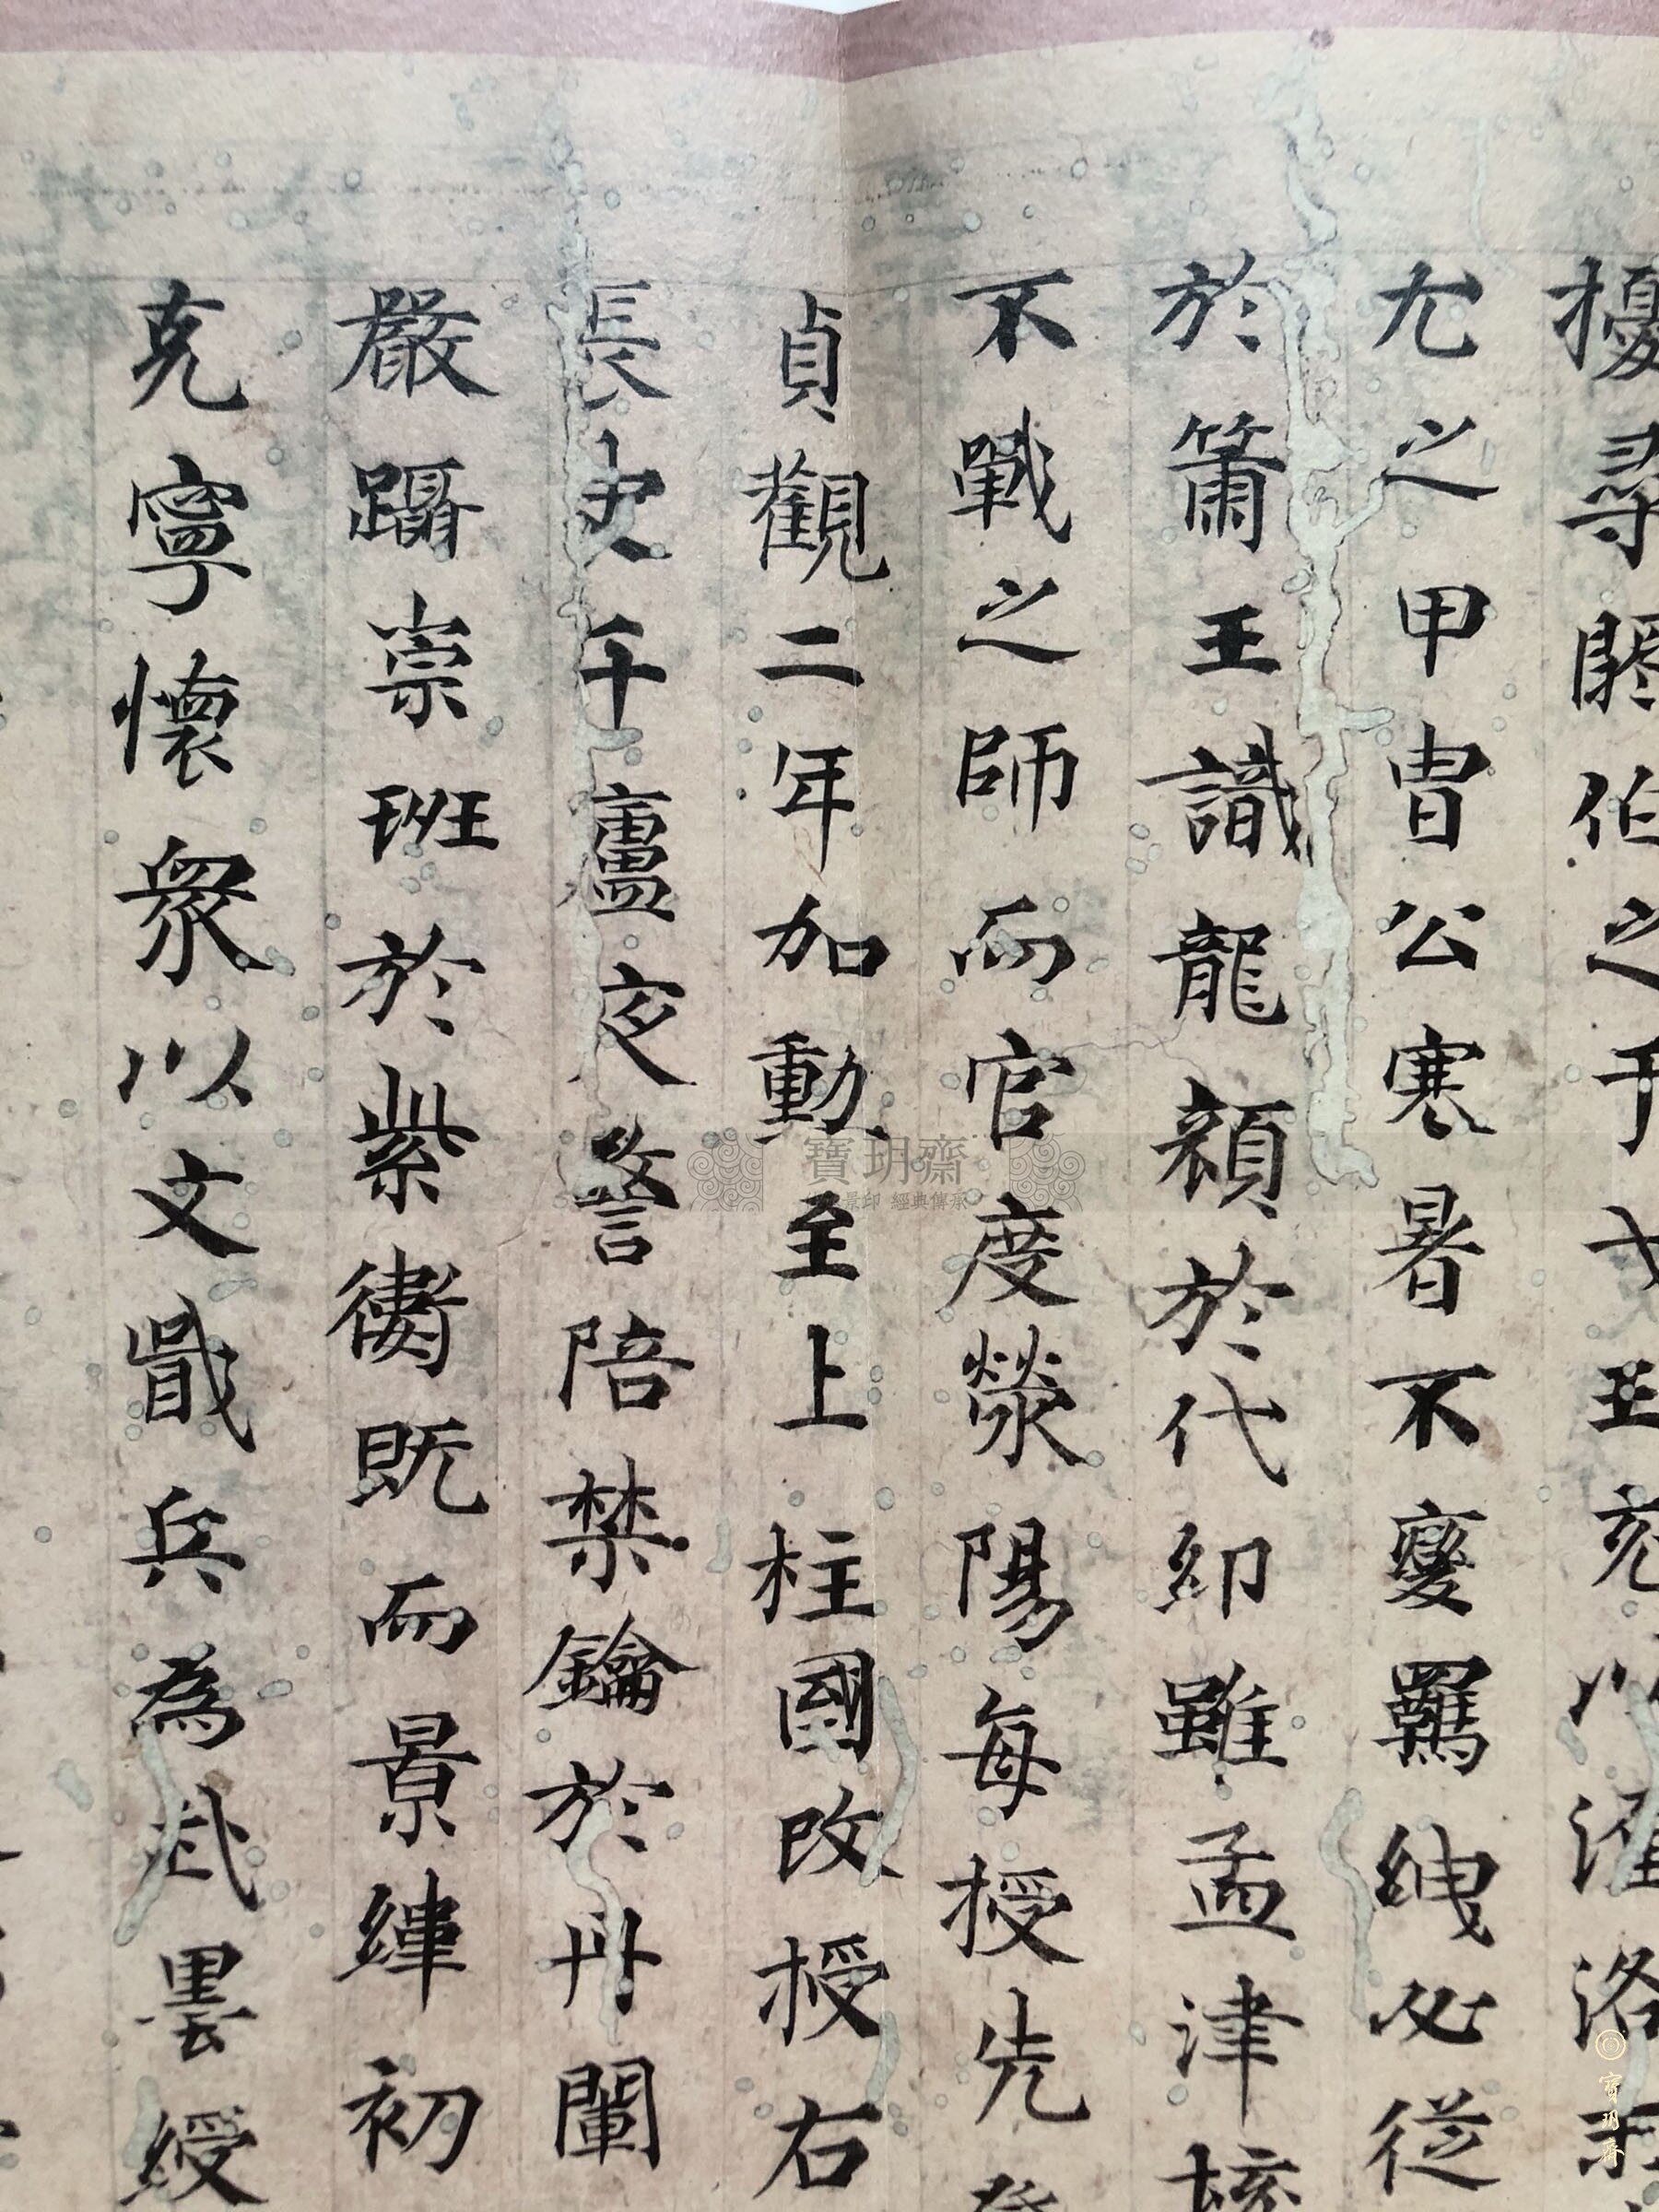 擾尋閼伯之干戈王充以洛
尤之甲冑公寒暑不變羈絏必從
於簫王識龍顏於代邸雖孟津
不戰之師而官度滎陽每授先登
貞觀二年加動至上柱國改授右
長史千廬夜警陪禁鑰於丹闈
嚴躡崇班於紫衛既而景緯初
克寧懷眾以文戢兵為武墨綬
寶玥齋
景印 經典傳承
寶玥齋